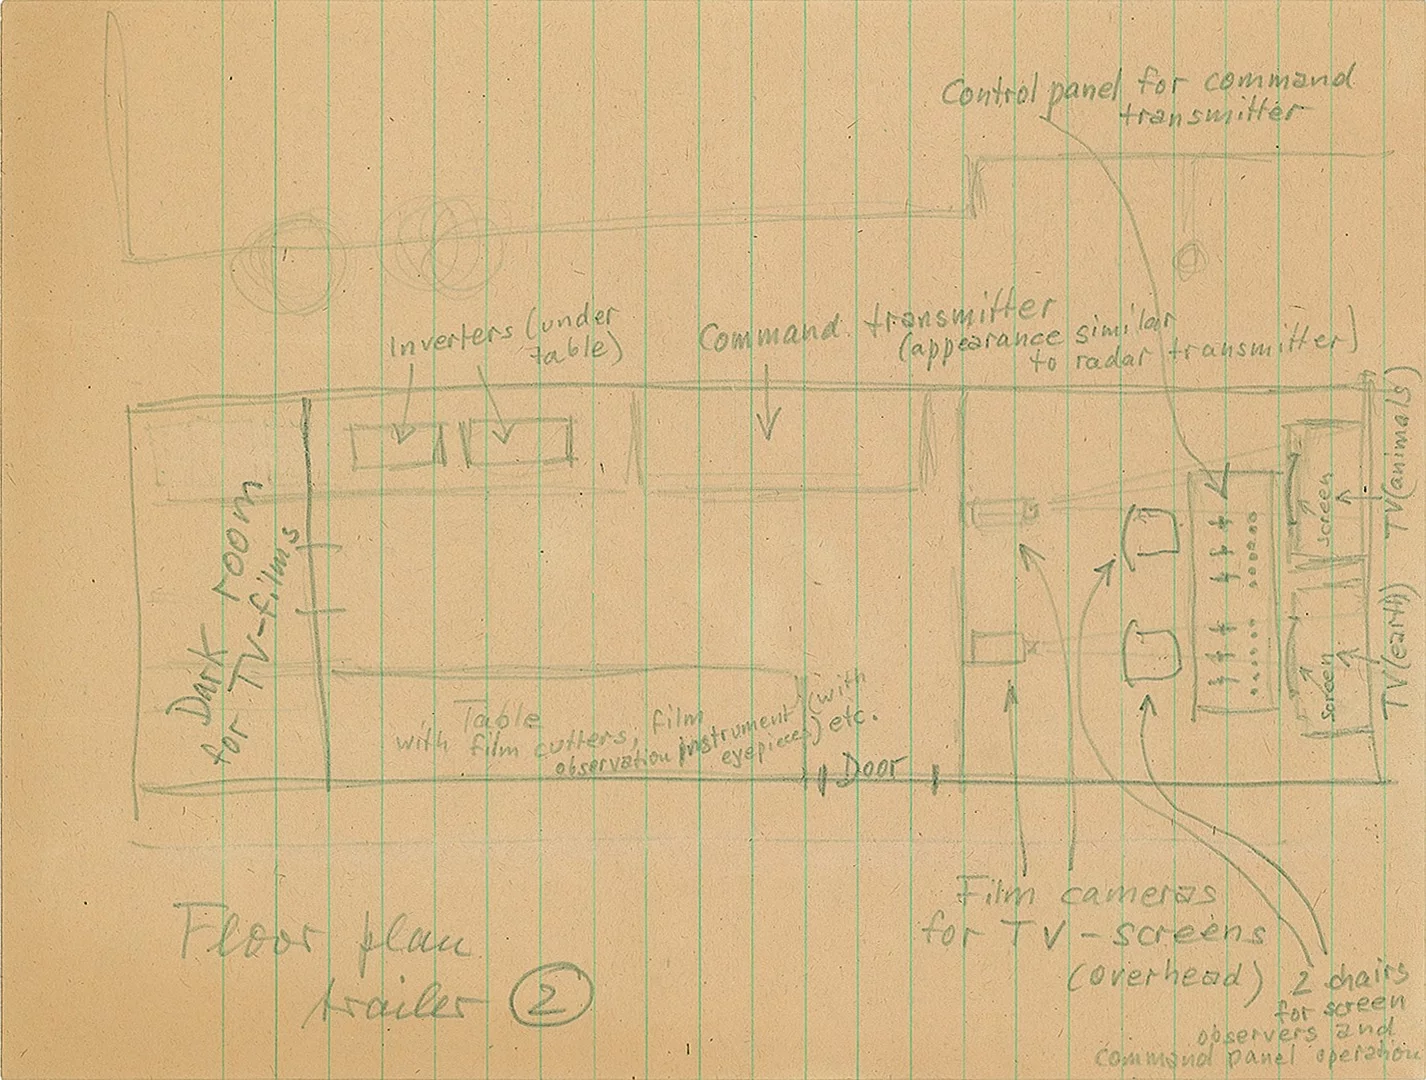 Control panel for command
transmitter
Inverters (under
table)
Command transmitter
(appearance similar
to radar transmitter)
Dark room
for TV-films
screen
TV(animals)
screen
TV(earth)
Table
with film cutters, film
observation instrument (with
eyepieces) etc.
Door
Floor plan
trailer 2
Film cameras
for TV-screens
(overhead)
2 chairs
for screen
observers and
command panel operation